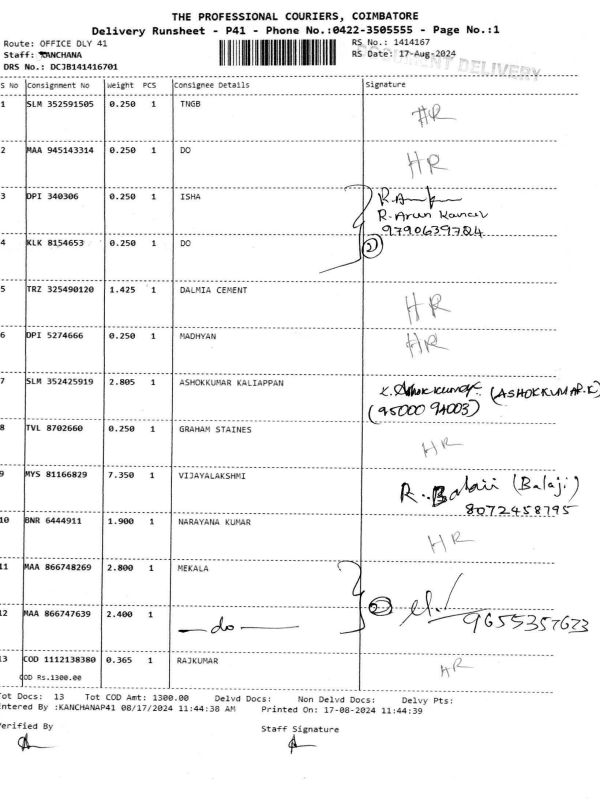 THE PROFESSIONAL COURIERS, COIMBATORE
Delivery Runsheet - P41 - Phone No.:0422-3505555 - Page No.:1
Route: OFFICE DLY 41 RS No.: 1414167
Staff: KANCHANA RS Date: 17-Aug-2024
DRS No.: DCJB141416701 DELIVERY
S No Consignment No Weight PCS Consignee Details Signature
1 SLM 352591505 0.250 1 TNGB HR
2 MAA 945143314 0.250 1 DO HR
3 DPI 340306 0.250 1 ISHA
R. Arun Kumar
9790639784
4 KLK 8154653 0.250 1 DO 2
5 TRZ 325490120 1.425 1 DALMIA CEMENT HR
6 DPI 5274666 0.250 1 MADHYAN HR
7 SLM 352425919 2.805 1 ASHOKKUMAR KALIAPPAN K. Ashokkumar (ASHOKKUMAR.K)
(95000 94003)
8 TVL 8702660 0.250 1 GRAHAM STAINES HR
9 MYS 81166829 7.350 1 VIJAYALAKSHMI R. Balaji (Balaji)
8072458795
10 BNR 6444911 1.900 1 NARAYANA KUMAR HR
11 MAA 866748269 2.800 1 MEKALA
12 MAA 866747639 2.400 1 -do- 9655357623
13 COD 1112138380 0.365 1 RAJKUMAR HR
COD Rs.1300.00
Tot Docs: 13 Tot COD Amt: 1300.00 Delvd Docs: Non Delvd Docs: Delvy Pts:
Entered By :KANCHANAP41 08/17/2024 11:44:38 AM Printed On: 17-08-2024 11:44:39
Verified By Staff Signature